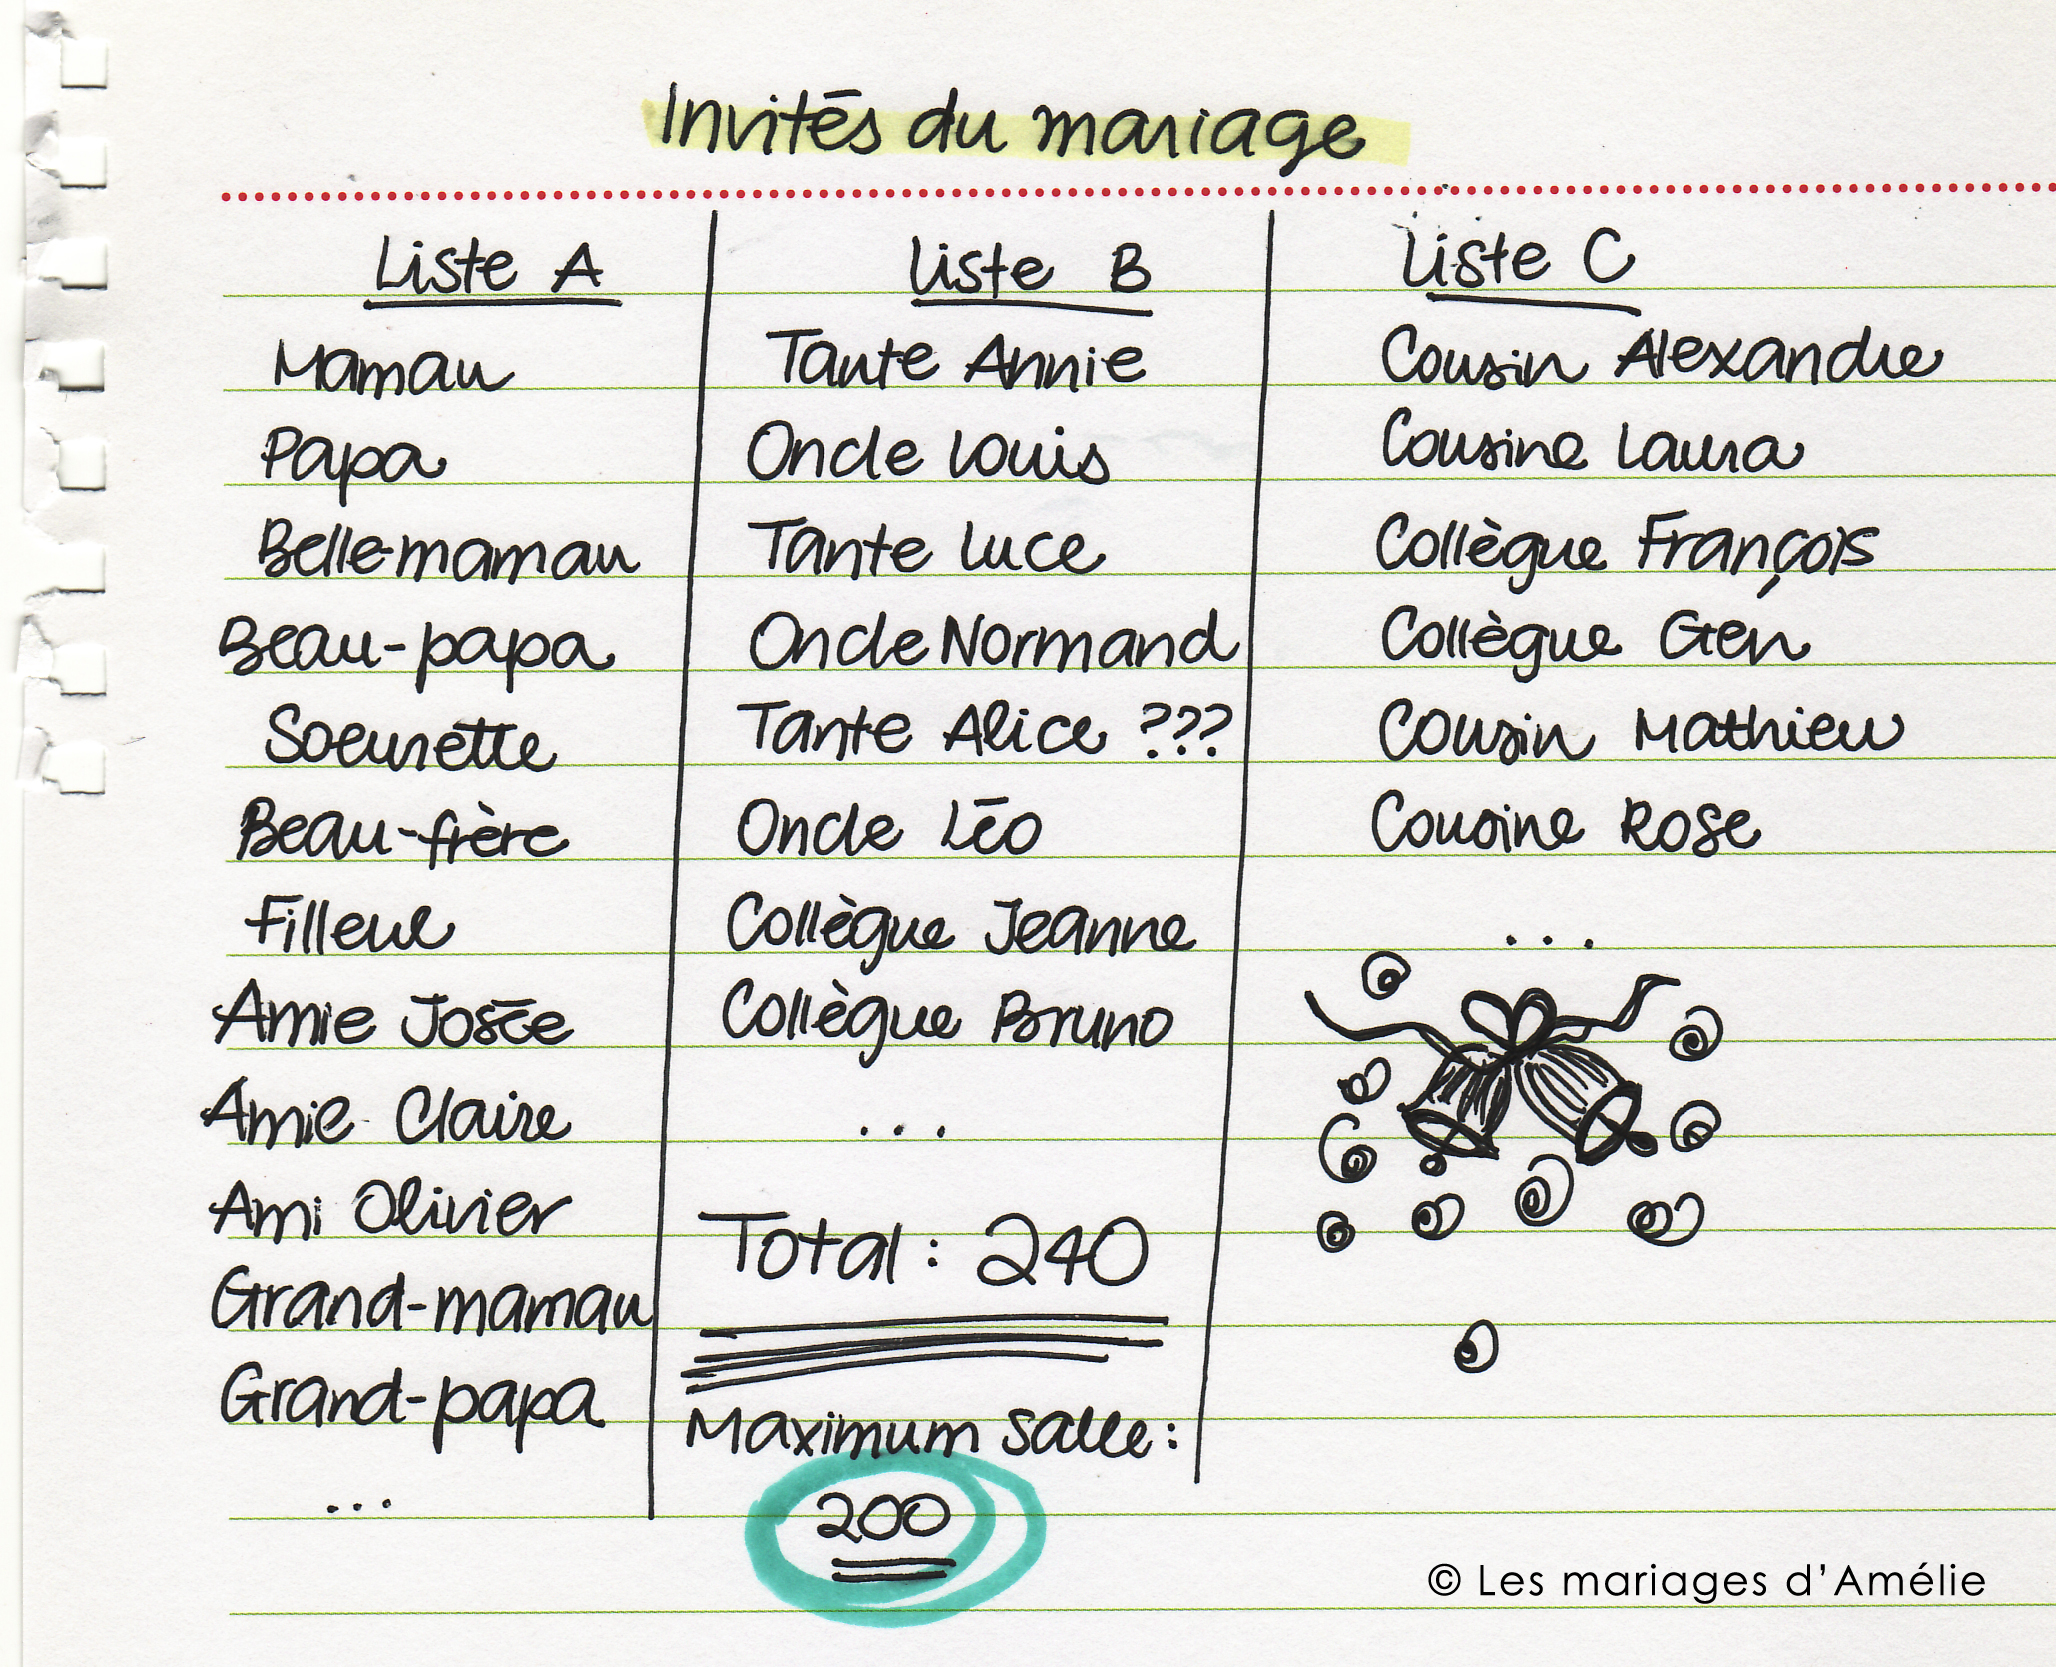 Invités du mariage
Liste A
Maman
Papa
Belle-maman
Beau-papa
Soeurette
Beau-frère
Filleul
Amie Josée
Amie Claire
Ami Olivier
Grand-maman
Grand-papa
...
Liste B
Tante Annie
Oncle Louis
Tante Luce
Oncle Normand
Tante Alice ???
Oncle Léo
Collègue Jeanne
Collègue Bruno
...
Total : 240
Maximum salle :
200
Liste C
Cousin Alexandre
Cousine Laura
Collègue François
Collègue Gen
Cousin Mathieu
Cousine Rose
...
© Les mariages d'Amélie